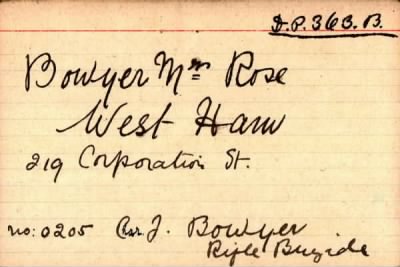 D.P. 363.B.
Bowyer Mrs Rose
West Ham
219 Corporation St.
no: 0205 J. Bowyer
Rifle Brigade